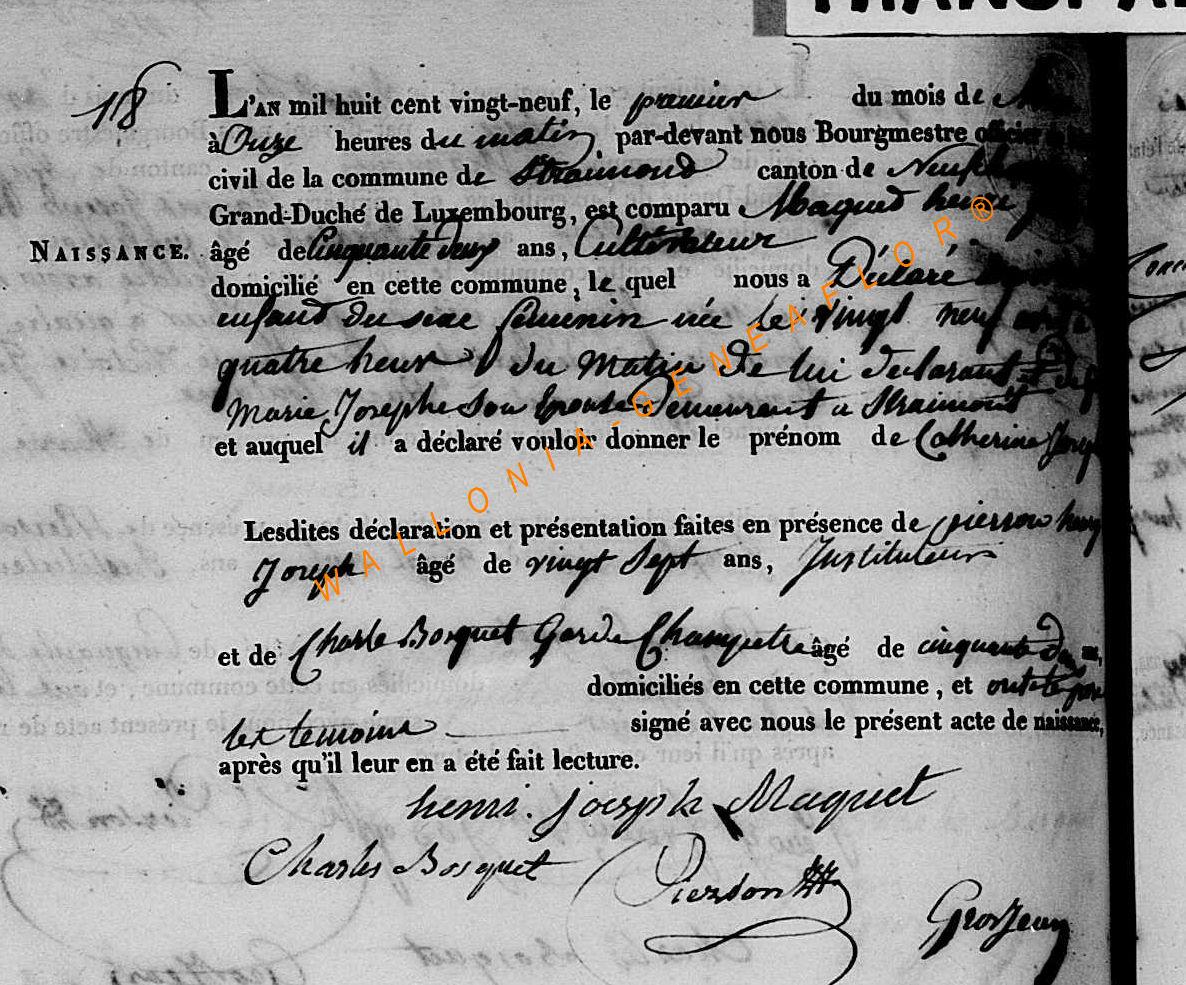 118
L'AN mil huit cent vingt-neuf, le premier du mois de
à Onze heures du matin, par-devant nous Bourgmestre officier
civil de la commune de Straimond canton de
Grand-Duché de Luxembourg, est comparu Maquet henri
NAISSANCE. âgé de Cinquante deux ans, Cultivateur
domicilié en cette commune, le quel nous a Déclaré
enfant du sexe femenin née le vingt neuf
quatre heur du Matin de lui declarant et
Marie Josephe Son Epouse Demeurant a Straimont
et auquel il a déclaré vouloir donner le prénom de Catherine
Lesdites déclaration et présentation faites en présence de
Joseph âgé de vingt Sept ans, Instituteur
et de Charle Bosquet Garde Champetre âgé de cinquante
domiciliés en cette commune, et
les temoins signé avec nous le présent acte de naissance,
après qu'il leur en a été fait lecture.
henri Joseph Maquet
Charles Bosquet
GrosJean
WALLONIA-GENEAFLOR®